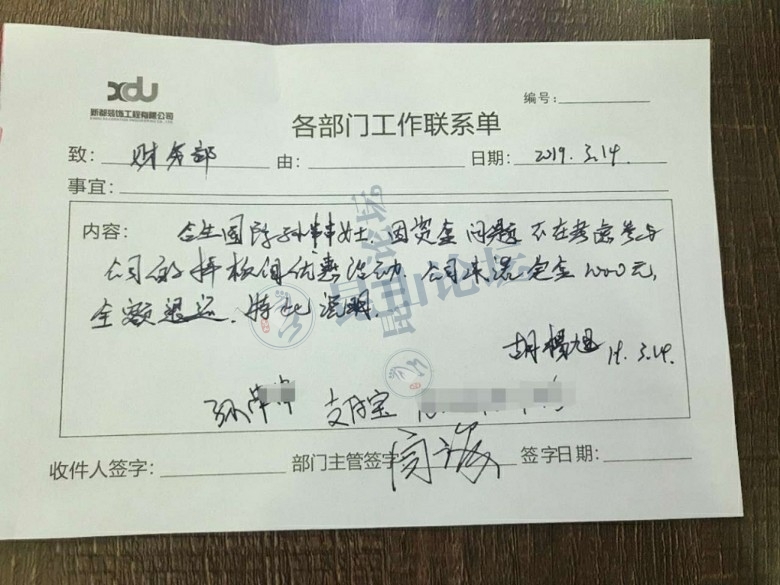 xdu
新都装饰工程有限公司
编号：
各部门工作联系单
致： 财务部 由： 日期： 2019.3.14.
事宜：
内容： 合生国际孙苹女士，因资金问题不在考虑参与
公司的样板间优惠活动，公司决定定金1000元，
全额退还，特此说明。
胡杨旭 19.3.14.
孙苹 支付宝
收件人签字： 部门主管签字： 签字日期：
昆山论坛